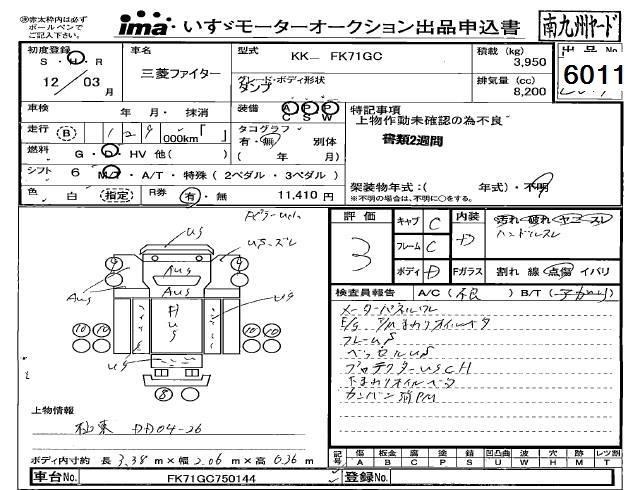 ㊟赤太枠内は必ず
ボールペンで
ご記入下さい。
ima いすゞモーターオークション出品申込書
南九州ヤード
初度登録
S・H・R
12/03月
車名
三菱ファイター
型式
KK― FK71GC
グレード・ボディ形状
ダンプ
積載 (kg)
3,950
排気量 (cc)
8,200
出品No.
6011
車検 年・月・抹消
装備 A P P
C S W
走行 B 129,000km「 」
タコグラフ
有・無 別体
( 年 月)
燃料 G・D・HV 他( )
シフト 6 M/T・A/T・特殊(2ペダル・3ペダル)
色 白 指定 R券 有・無 11,410 円
特記事項
上物作動未確認の為不良
書類2週間
架装物年式:( 年式)・不明
※不明の場合は、不明に○をする。
評価
3
キャブ C
フレーム C
ボディ D
内装 D
Fガラス
汚れ・破れ・ヤニ・スレ
ハンドルスレ
割れ 線 点傷 イバリ
検査員報告 A/C(不良) B/T( )
メーターパネルワレ
フレームS
ベッセルUS
プロテクターUSCH
下まわりオイルベタ
カンバン消PM
US
USズレ
AUS
AUS
AUS
US
US
US
9
9
10 10
10 10
8
上物情報
極東 DD04-26
ボディ内寸約 長 3.38 m×幅 2.06 m×高 0.36 m
記号
傷 板金 腐 塗 錆 凹凸曲 波 穴 跡 レッ割
A B C P S U W H M T
車台No. FK71GC750144
登録No.